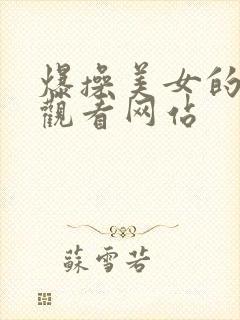 爆操美女的
觀看网佔
蘇雪若